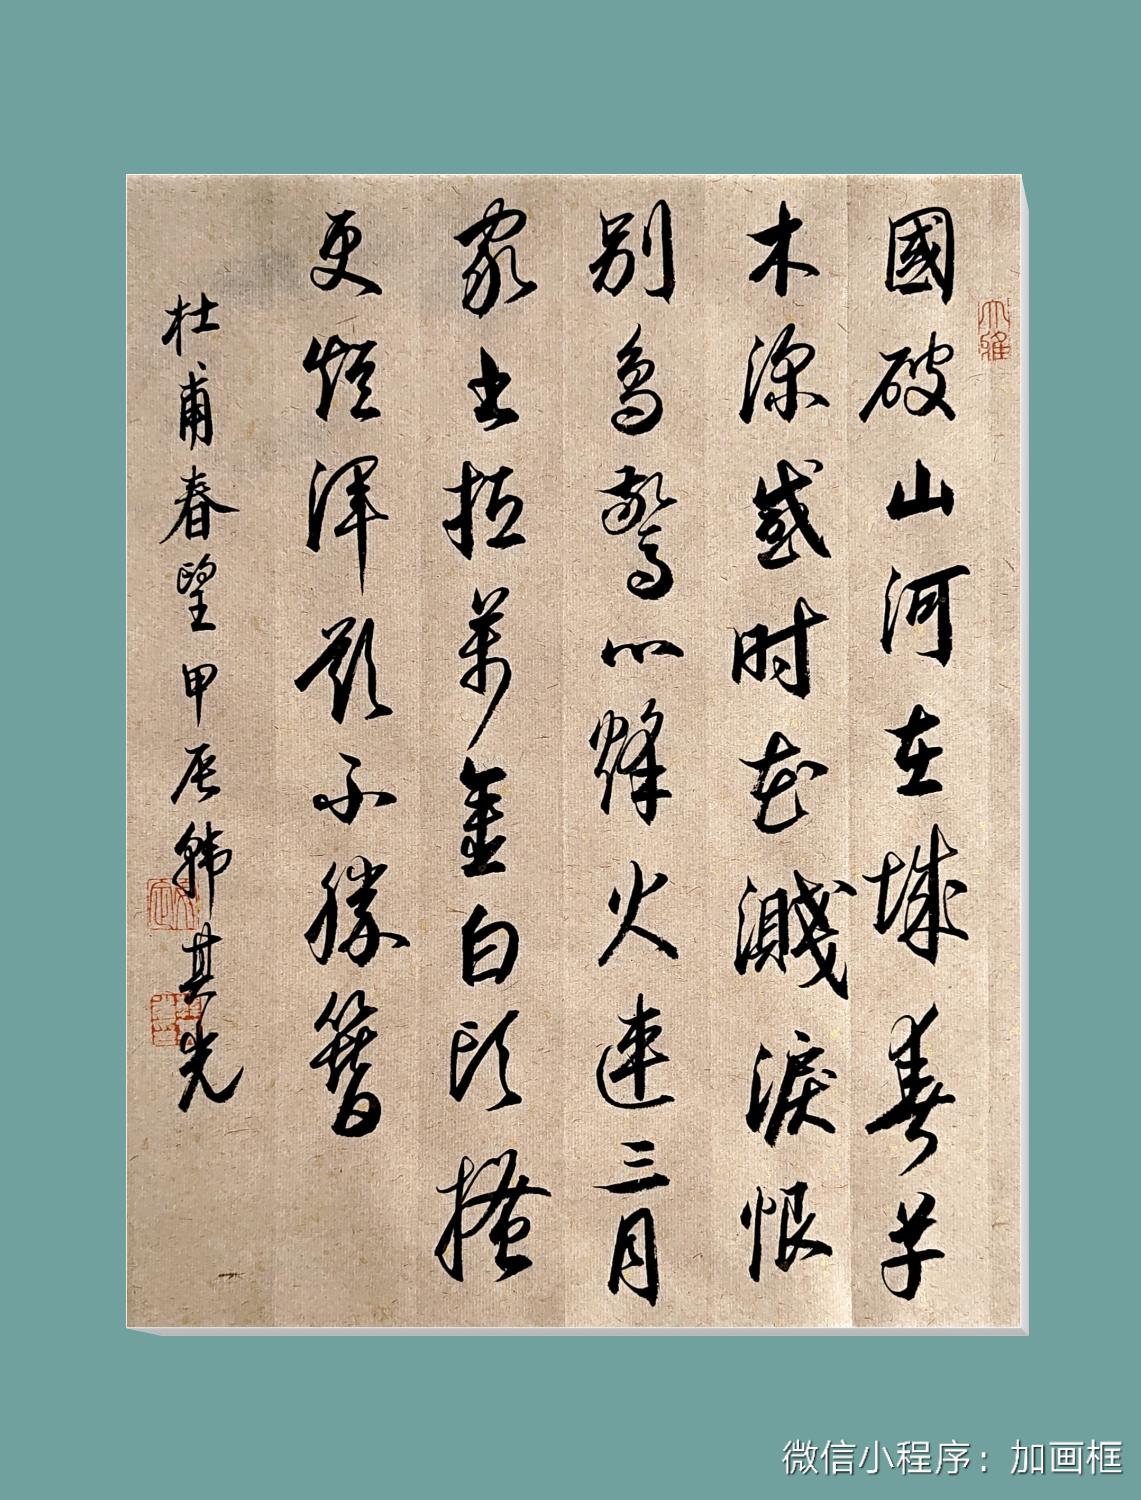 國破山河在城春草
木深感时花濺淚恨
别鸟驚心烽火連三月
家書抵萬金白頭搔
更短渾欲不勝簪
杜甫春望甲辰韩其光
大雅
微信小程序：加画框